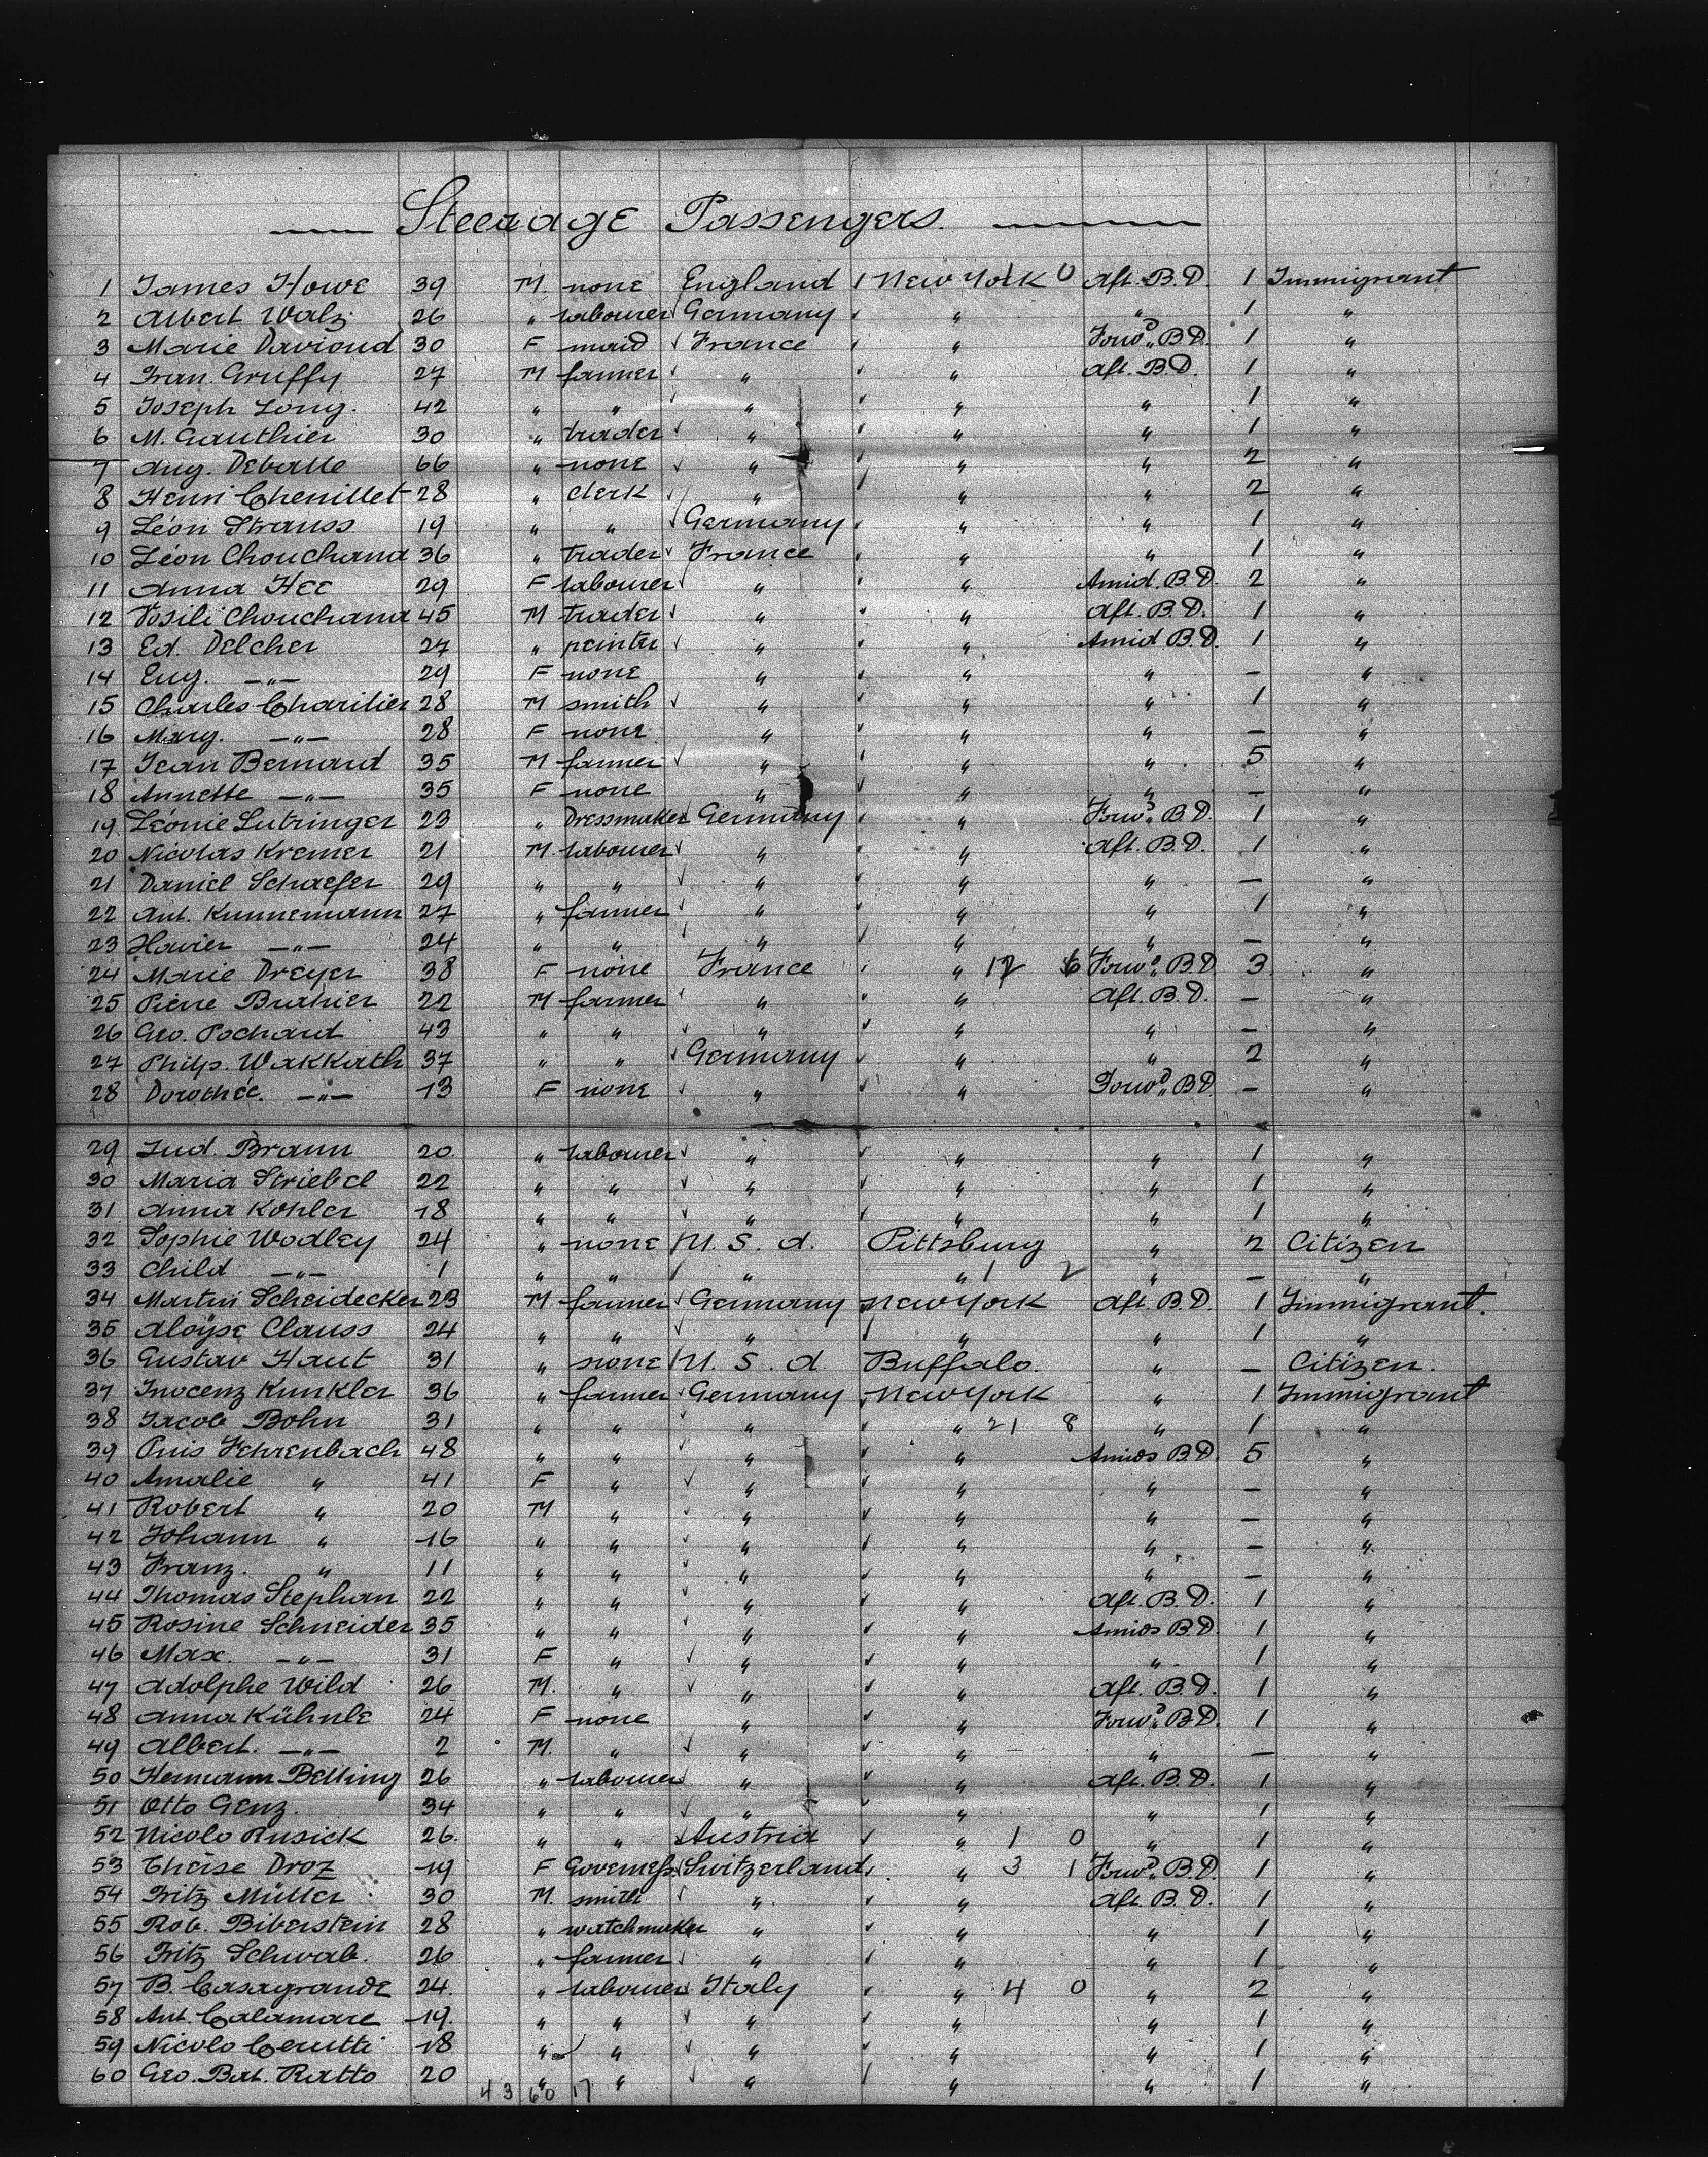 Steerage Passengers.
1 James Howe 39 M. none England New York 0 Aft. B.D. 1 Immigrant
2 Albert Walz 26 " labourer Germany " " 1 "
3 Marie Daviond 30 F maid France " Forwd. B.D. 1 "
4 Fran. Gruffy 27 M farmer " " Aft. B.D. 1 "
5 Joseph Long. 42 " " " " " 1 "
6 M. Gauthier 30 " trader " " " 1 "
7 Aug. Deballe 66 " none " " " 2 "
8 Henri Chenillet 28 " clerk " " " 2 "
9 Léon Strauss 19 " " Germany " " 1 "
10 Léon Chouchana 36 " trader France " " 1 "
11 Anna Hee 29 F labourer " " Amid. B.D. 2 "
12 Vosili Chouchana 45 M trader " " Aft. B.D. 1 "
13 Ed. Delcher 27 " peinter " " Amid B.D. 1 "
14 Eug. —"— 29 F none " " " — "
15 Charles Charilier 28 M smith " " " 1 "
16 Marg. —"— 28 F none " " " — "
17 Jean Bernard 35 M farmer " " " 5 "
18 Annette —"— 35 F none " " " — "
19 Léonie Lutringer 23 " Dressmaker Germany " Forwd. B.D. 1 "
20 Nicolas Kremer 21 M. labourer " " Aft. B.D. 1 "
21 Daniel Schaefer 29 " " " " " — "
22 Ant. Kunnemann 27 " farmer " " " 1 "
23 Havier —"— 24 " " " " " — "
24 Marie Dreyer 38 F none France " 12 6 Forwd. B.D. 3 "
25 Pierre Bruhier 22 M farmer " " Aft. B.D. — "
26 Geo. Pochard 43 " " " " " — "
27 Philp. Wakkath 37 " " Germany " " 2 "
28 Dorothée. —"— 13 F none " " Forwd. B.D. — "
29 Lud. Braun 20 " labourer " " " 1 "
30 Maria Striebel 22 " " " " " 1 "
31 Anna Kohler 18 " " " " " 1 "
32 Sophie Wodley 24 " none U. S. A. Pittsburg " 2 Citizen
33 Child —"— 1 " " " " 1 2 " — "
34 Martin Scheidecker 23 M. farmer Germany New York Aft. B.D. 1 Immigrant.
35 Aloÿse Clauss 24 " " " " " 1 "
36 Gustav Haut 31 " none U. S. A Buffalo. " — Citizen.
37 Inocenz Kunkler 36 " farmer Germany New York " 1 Immigrant
38 Jacob Bohn 31 " " " " 21 8 " 1 "
39 Pius Fehrenbach 48 " " " " Amids B.D. 5 "
40 Amalie " 41 F " " " " — "
41 Robert " 20 M " " " " — "
42 Johann " 16 " " " " " — "
43 Franz. " 11 " " " " " — "
44 Thomas Stephan 22 " " " " Aft. B.D. 1 "
45 Rosine Schneider 35 " " " " Amids B.D. 1 "
46 Max. —"— 31 F " " " " 1 "
47 Adolphe Wild 26 M. " " " Aft. B.D. 1 "
48 Anna Kühnle 24 F none " " Forwd. B.D. 1 "
49 Albert. —"— 2 M. " " " " — "
50 Hermann Belling 26 " labourer " " Aft. B.D. 1 "
51 Otto Genz. 34 " " " " " 1 "
52 Nicolo Rusick 26. " " Austria " 1 0 " 1 "
53 Thérse Droz 19 F Governess Switzerland " 3 1 Forwd. B.D. 1 "
54 Fritz Müller 30 M. smith " " Aft. B.D. 1 "
55 Rob. Biberstein 28 " watchmaker " " " 1 "
56 Fritz Schwab. 26 " farmer " " " 1 "
57 B. Casagrande 24. " labourer Italy " 4 0 " 2 "
58 Ant. Calamare 19. " " " " " 1 "
59 Nicolo Cerutti 18 " " " " " 1 "
60 Geo. Bat. Ratto 20 " " " " " 1 "
43 60 17